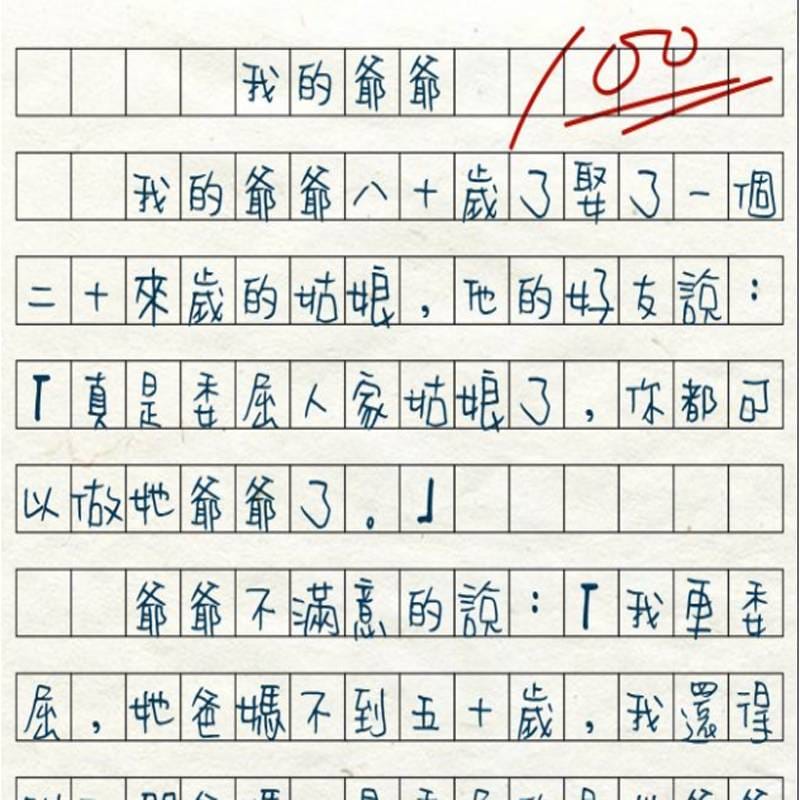 我的爺爺
100
我的爺爺八十歲了娶了一個
二十來歲的姑娘，他的好友說：
「真是委屈人家姑娘了，你都可
以做她爺爺了。」
爺爺不滿意的說：「我更委
屈，她爸媽不到五十歲，我還得